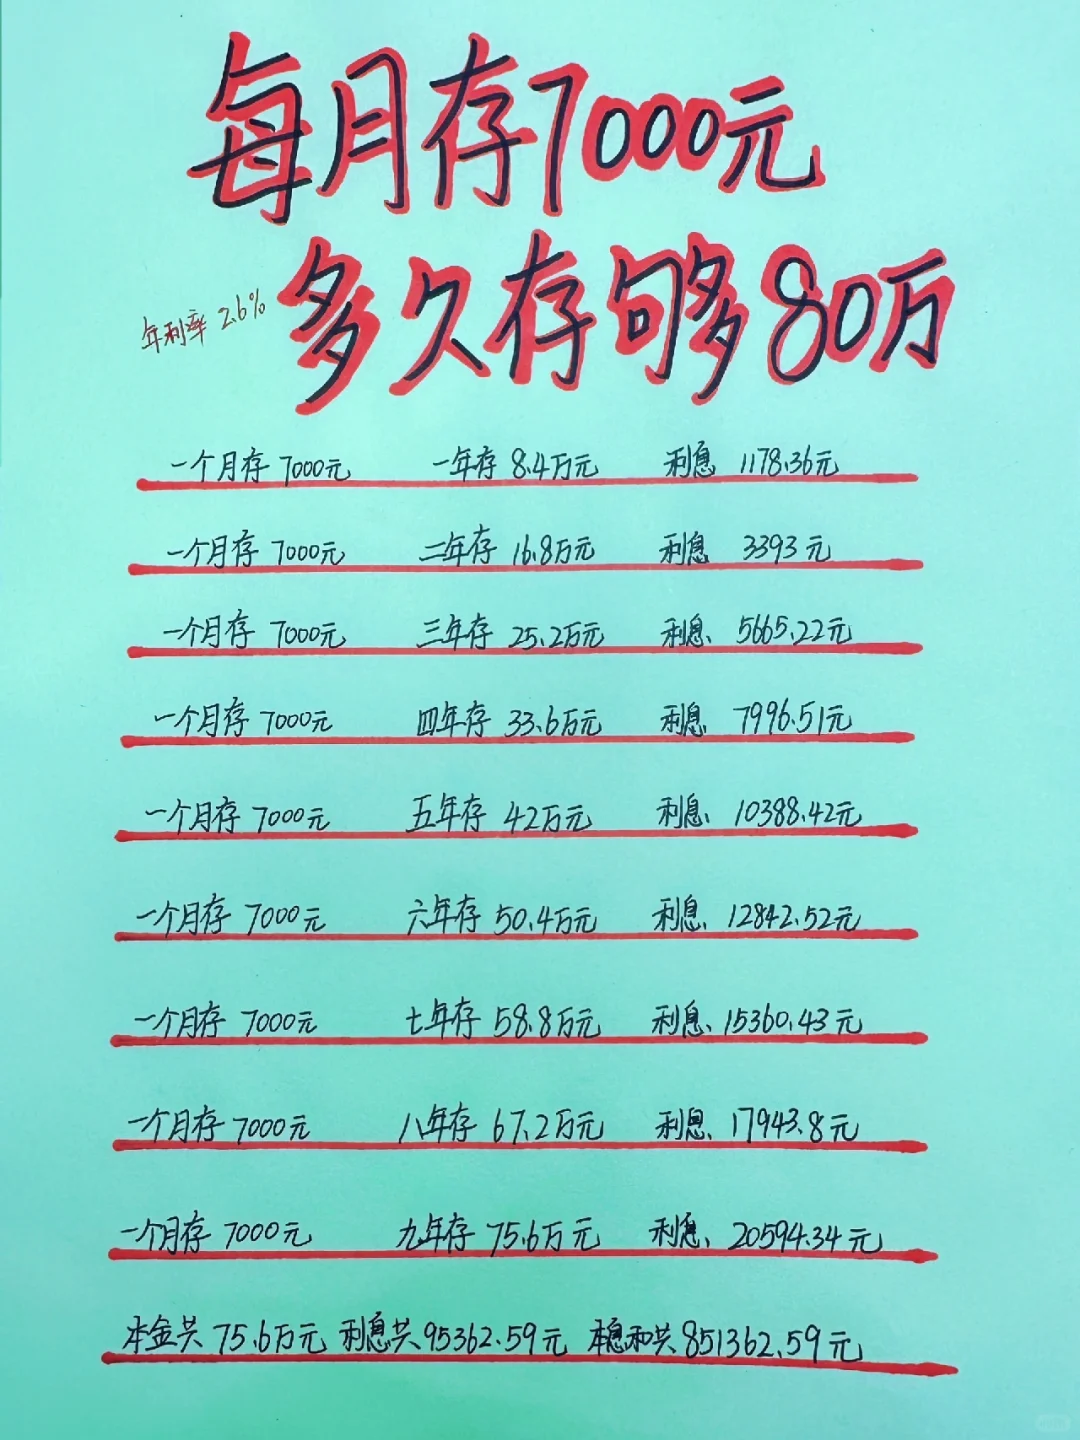 每月存7000元
多久存够80万
年利率 2.6%
一个月存 7000元 一年存 8.4万元 利息 1178.36元
一个月存 7000元 二年存 16.8万元 利息 3393元
一个月存 7000元 三年存 25.2万元 利息、5665.22元
一个月存 7000元 四年存 33.6万元 利息、7996.51元
一个月存 7000元 五年存 42万元 利息、10388.42元
一个月存 7000元 六年存 50.4万元 利息、12842.52元
一个月存 7000元 七年存 58.8万元 利息、15360.43元
一个月存 7000元 八年存 67.2万元 利息、17943.8元
一个月存 7000元 九年存 75.6万元 利息、20594.34元
本金共 75.6万元 利息共 95362.59元 本息和共 851362.59元